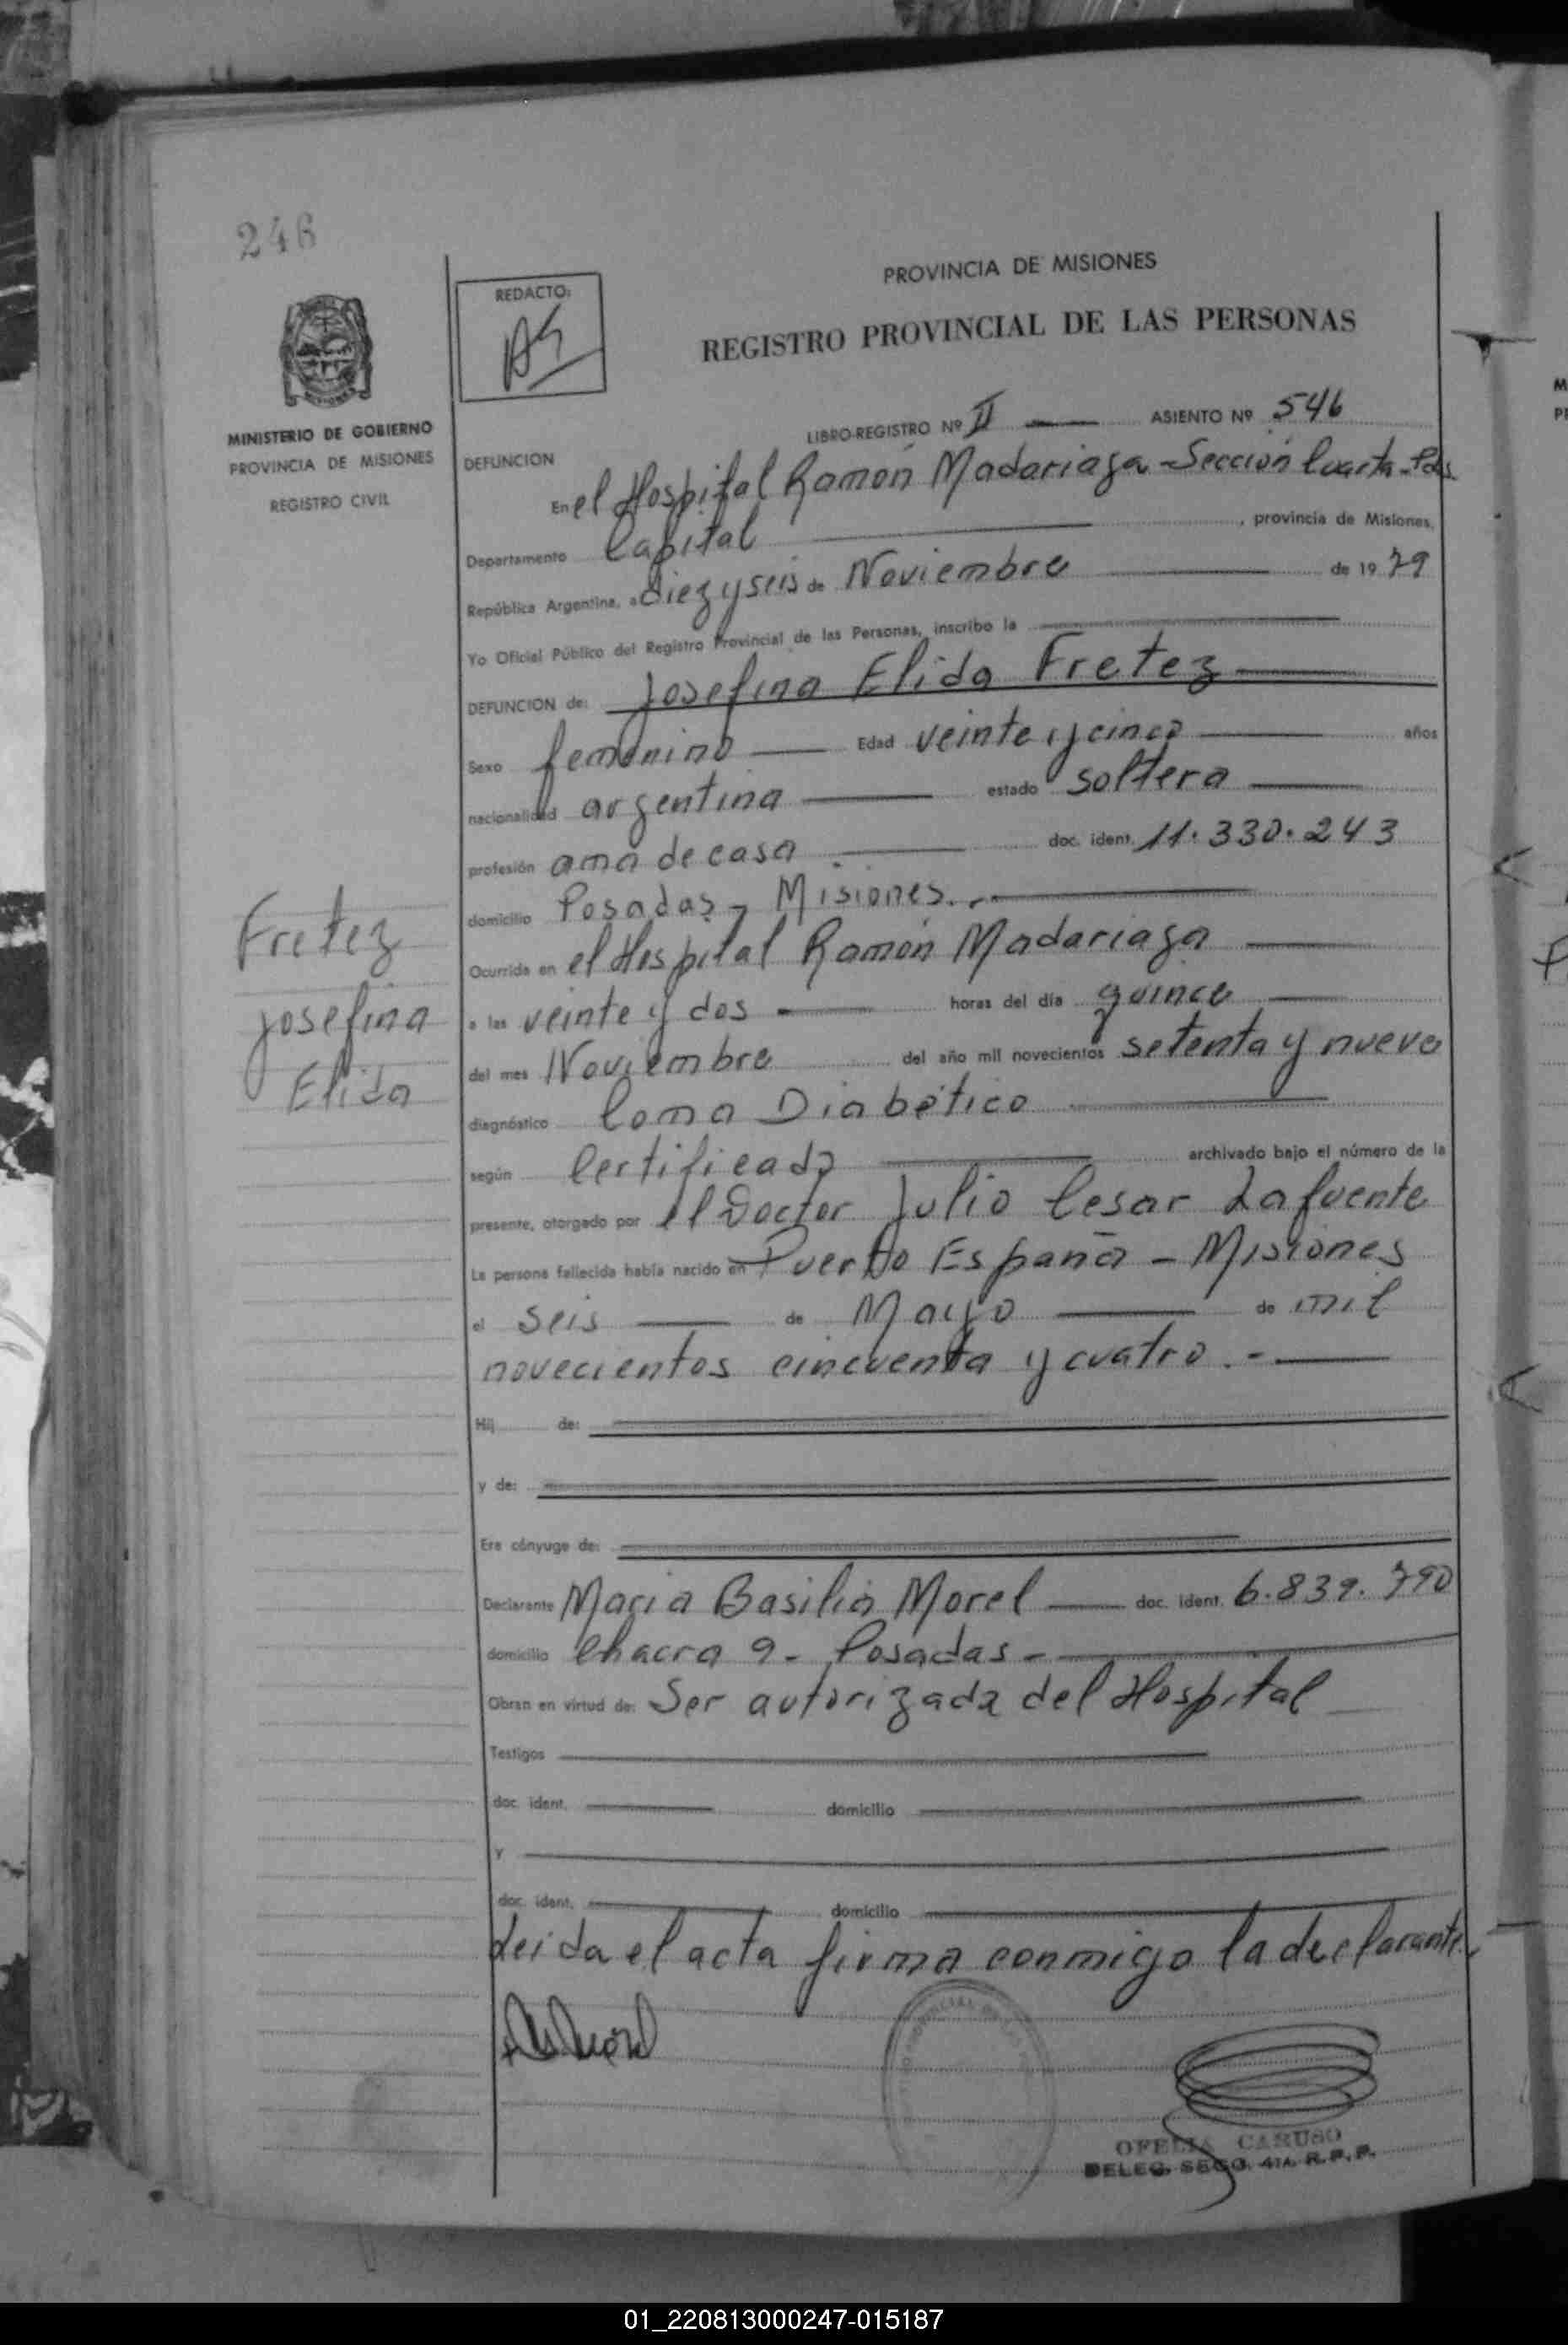 246
PROVINCIA DE MISIONES
REDACTO:
REGISTRO PROVINCIAL DE LAS PERSONAS
MINISTERIO DE GOBIERNO
PROVINCIA DE MISIONES
REGISTRO CIVIL
LIBRO-REGISTRO Nº II ASIENTO Nº 546
DEFUNCION
En el Hospital Ramón Madariaga - Sección Cuarta - Pdas.
Departamento Capital, provincia de Misiones,
República Argentina, a diez y seis de Noviembre de 1979
Yo Oficial Público del Registro Provincial de las Personas, inscribo la
DEFUNCION de: Josefina Elida Fretez
Sexo femenino Edad veinte y cinco años
nacionalidad argentina estado soltera
profesión ama de casa doc. ident. 11.330.243
domicilio Posadas - Misiones.-
Ocurrida en el Hospital Ramón Madariaga
a las veinte y dos horas del día quince
del mes Noviembre del año mil novecientos setenta y nueve
diagnóstico Coma Diabético
según Certificado archivado bajo el número de la
presente, otorgado por el Doctor Julio Cesar Lafuente
La persona fallecida había nacido en Puerto España - Misiones
el seis de Mayo de mil
novecientos cincuenta y cuatro.-
Hij de:
y de:
Era cónyuge de:
Declarante Maria Basilia Morel doc. ident. 6.839.790
domicilio Chacra 9 - Posadas -
Obran en virtud de: Ser autorizada del Hospital
Testigos
doc. ident. domicilio
y
doc. ident. domicilio
Leida el acta firma conmigo la declarante.
Fretez
Josefina
Elida
OFELIA CARUSO
DELEG. SECC. 4TA. R.P.P.
01_220813000247-015187